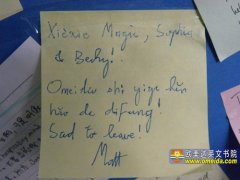 Xièxie Magie, Sophia
& Becky.
Omeida shì yīge hěn
hǎo de dìfang!
Sad to leave!
Matt
欧美达英文书院
www.omeida.com